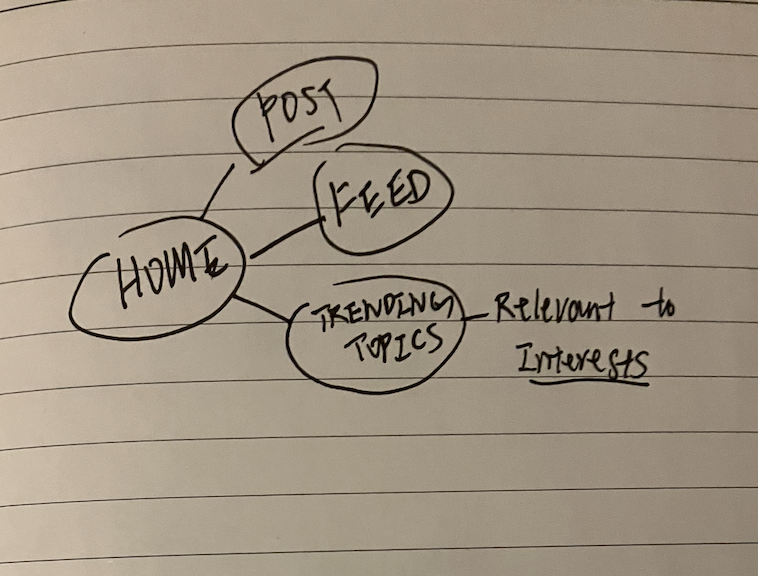 POST
FEED
HOME
TRENDING
TOPICS
Relevant to
Interests